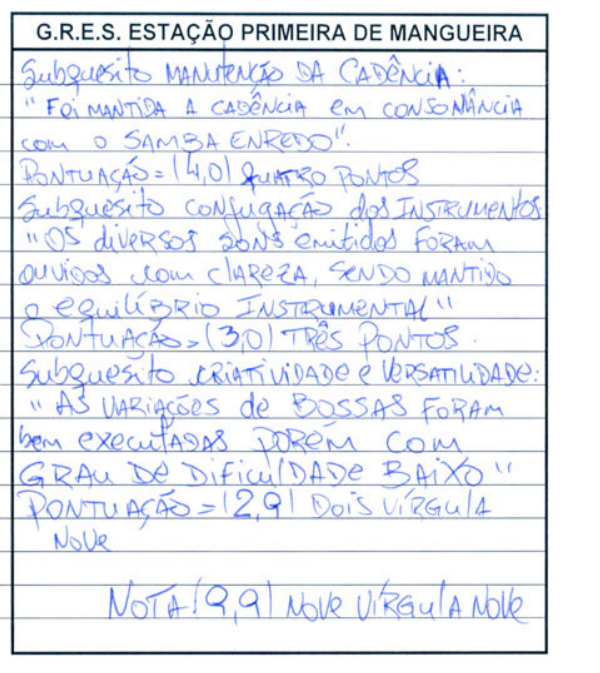 G.R.E.S. ESTAÇÃO PRIMEIRA DE MANGUEIRA
Subquesito MANUTENÇÃO DA CADÊNCIA:
"FOI MANTIDA A CADÊNCIA em CONSONÂNCIA
com o SAMBA ENREDO".
PONTUAÇÃO = (4,0) QUATRO PONTOS
Subquesito CONJUGAÇÃO dos INSTRUMENTOS
"OS diversos sons emitidos FORAM
ouvidos com clAREZA, SENDO MANTIDO
o equilÍBRIO INSTRUMENTAL"
PONTUAÇÃO = (3,0) TRÊS PONTOS.
Subquesito CRIATIVIDADE e VERSATILIDADE:
"AS VARIAÇÕES de BOSSAS FORAM
bem executADAS PORÉM COM
GRAU DE DIFICULDADE BAIXO"
PONTUAÇÃO = (2,9) DOIS VÍRGULA
NOVE
NOTA (9,9) NOVE VÍRGULA NOVE